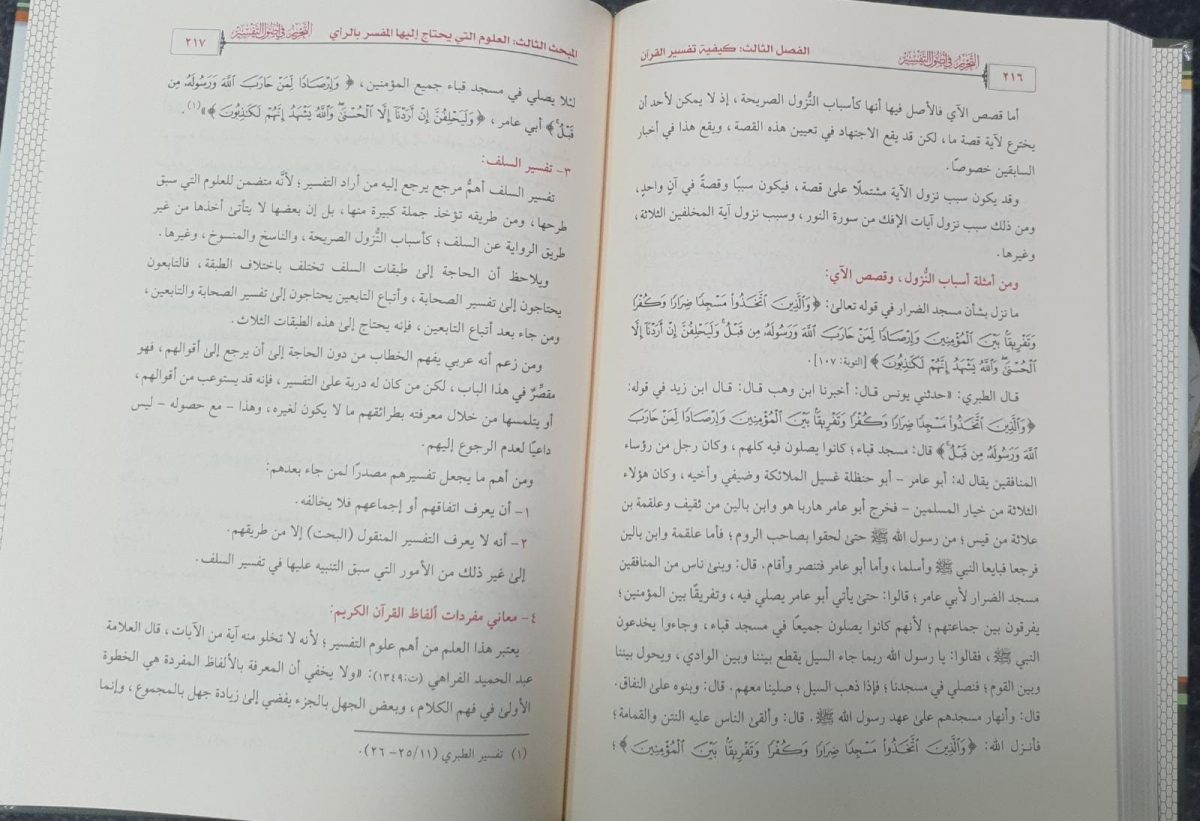 ٢١٦
التحرير في أصول التفسير
الفصل الثالث: كيفية تفسير القرآن
أما قصص الآي فالأصل فيها أنها كأسباب النُّزول الصريحة، إذ لا يمكن لأحد أن
يخترع لآية قصة ما، لكن قد يقع الاجتهاد في تعيين هذه القصة، ويقع هذا في أخبار
السابقين خصوصًا.
وقد يكون سبب نزول الآية مشتملًا علىٰ قصة، فيكون سببًا وقصةً في آنٍ واحدٍ،
ومن ذلك سبب نزول آيات الإفك من سورة النور، وسبب نزول آية المخلفين الثلاثة،
وغيرها.
ومن أمثلة أسباب النُّزول، وقصص الآي:
ما نزل بشأن مسجد الضرار في قوله تعالىٰ: ﴿وَالَّذِينَ اتَّخَذُوا مَسْجِدًا ضِرَارًا وَكُفْرًا
وَتَفْرِيقًا بَيْنَ الْمُؤْمِنِينَ وَإِرْصَادًا لِمَنْ حَارَبَ اللَّهَ وَرَسُولَهُ مِن قَبْلُ ۚ وَلَيَحْلِفُنَّ إِنْ أَرَدْنَا إِلَّا
الْحُسْنَىٰ ۖ وَاللَّهُ يَشْهَدُ إِنَّهُمْ لَكَاذِبُونَ﴾ [التوبة: ١٠٧].
قال الطبري: «حدثني يونس قال: أخبرنا ابن وهب قال: قال ابن زيد في قوله:
﴿وَالَّذِينَ اتَّخَذُوا مَسْجِدًا ضِرَارًا وَكُفْرًا وَتَفْرِيقًا بَيْنَ الْمُؤْمِنِينَ وَإِرْصَادًا لِمَنْ حَارَبَ
اللَّهَ وَرَسُولَهُ مِن قَبْلُ ۚ﴾ قال: مسجد قباء؛ كانوا يصلون فيه كلهم، وكان رجل من رؤساء
المنافقين يقال له: أبو عامر – أبو حنظلة غسيل الملائكة وضيفي وأخيه، وكان هؤلاء
الثلاثة من خيار المسلمين – فخرج أبو عامر هاربا هو وابن بالين من ثقيف وعلقمة بن
علاثة من قيس؛ من رسول الله ﷺ حتىٰ لحقوا بصاحب الروم؛ فأما علقمة وابن بالين
فرجعا فبايعا النبي ﷺ وأسلما، وأما أبو عامر فتنصر وأقام. قال: وبنىٰ ناس من المنافقين
مسجد الضرار لأبي عامر؛ قالوا: حتىٰ يأتي أبو عامر يصلي فيه، وتفريقًا بين المؤمنين؛
يفرقون بين جماعتهم؛ لأنهم كانوا يصلون جميعًا في مسجد قباء، وجاءوا يخدعون
النبي ﷺ، فقالوا: يا رسول الله ربما جاء السيل يقطع بيننا وبين الوادي، ويحول بيننا
وبين القوم؛ فنصلي في مسجدنا؛ فإذا ذهب السيل؛ صلينا معهم. قال: وبنوه علىٰ النفاق.
قال: وأنهار مسجدهم علىٰ عهد رسول الله ﷺ. قال: وألقىٰ الناس عليه النتن والقمامة؛
فأنزل الله: ﴿وَالَّذِينَ اتَّخَذُوا مَسْجِدًا ضِرَارًا وَكُفْرًا وَتَفْرِيقًا بَيْنَ الْمُؤْمِنِينَ﴾؛
المبحث الثالث: العلوم التي يحتاج إليها المفسر بالرأي
التحرير في أصول التفسير
٢١٧
لئلا يصلي في مسجد قباء جميع المؤمنين، ﴿وَإِرْصَادًا لِمَنْ حَارَبَ اللَّهَ وَرَسُولَهُ مِن
قَبْلُ ۚ﴾ أبي عامر، ﴿وَلَيَحْلِفُنَّ إِنْ أَرَدْنَا إِلَّا الْحُسْنَىٰ ۖ وَاللَّهُ يَشْهَدُ إِنَّهُمْ لَكَاذِبُونَ﴾»(١).
٣- تفسير السلف:
تفسير السلف أهمُّ مرجع يرجع إليه من أراد التفسير؛ لأنَّه متضمن للعلوم التي سبق
طرحها، ومن طريقه تؤخذ جملة كبيرة منها، بل إن بعضها لا يتأتىٰ أخذها من غير
طريق الرواية عن السلف؛ كأسباب النُّزول الصريحة، والناسخ والمنسوخ، وغيرها.
ويلاحظ أن الحاجة إلىٰ طبقات السلف تختلف باختلاف الطبقة، فالتابعون
يحتاجون إلىٰ تفسير الصحابة، وأتباع التابعين يحتاجون إلىٰ تفسير الصحابة والتابعين،
ومن جاء بعد أتباع التابعين، فإنه يحتاج إلىٰ هذه الطبقات الثلاث.
ومن زعم أنه عربي يفهم الخطاب من دون الحاجة إلىٰ أن يرجع إلى أقوالهم، فهو
مقصِّرٌ في هذا الباب، لكن من كان له دربة علىٰ التفسير، فإنه قد يستوعب من أقوالهم،
أو يتلمسها من خلال معرفته بطرائقهم ما لا يكون لغيره، وهذا – مع حصوله – ليس
داعيًا لعدم الرجوع إليهم.
ومن أهم ما يجعل تفسيرهم مصدرًا لمن جاء بعدهم:
١- أن يعرف اتفاقهم أو إجماعهم فلا يخالفه.
٢- أنه لا يعرف التفسير المنقول (البحت) إلا من طريقهم.
إلىٰ غير ذلك من الأمور التي سبق التنبيه عليها في تفسير السلف.
٤- معاني مفردات ألفاظ القرآن الكريم:
يعتبر هذا العلم من أهم علوم التفسير؛ لأنه لا تخلو منه آية من الآيات، قال العلامة
عبد الحميد الفراهي (ت:١٣٤٩): «ولا يخفي أن المعرفة بالألفاظ المفردة هي الخطوة
الأولىٰ في فهم الكلام، وبعض الجهل بالجزء يفضي إلىٰ زيادة جهل بالمجموع، وإنما
(١) تفسير الطبري (١١/ ٢٥- ٢٦).